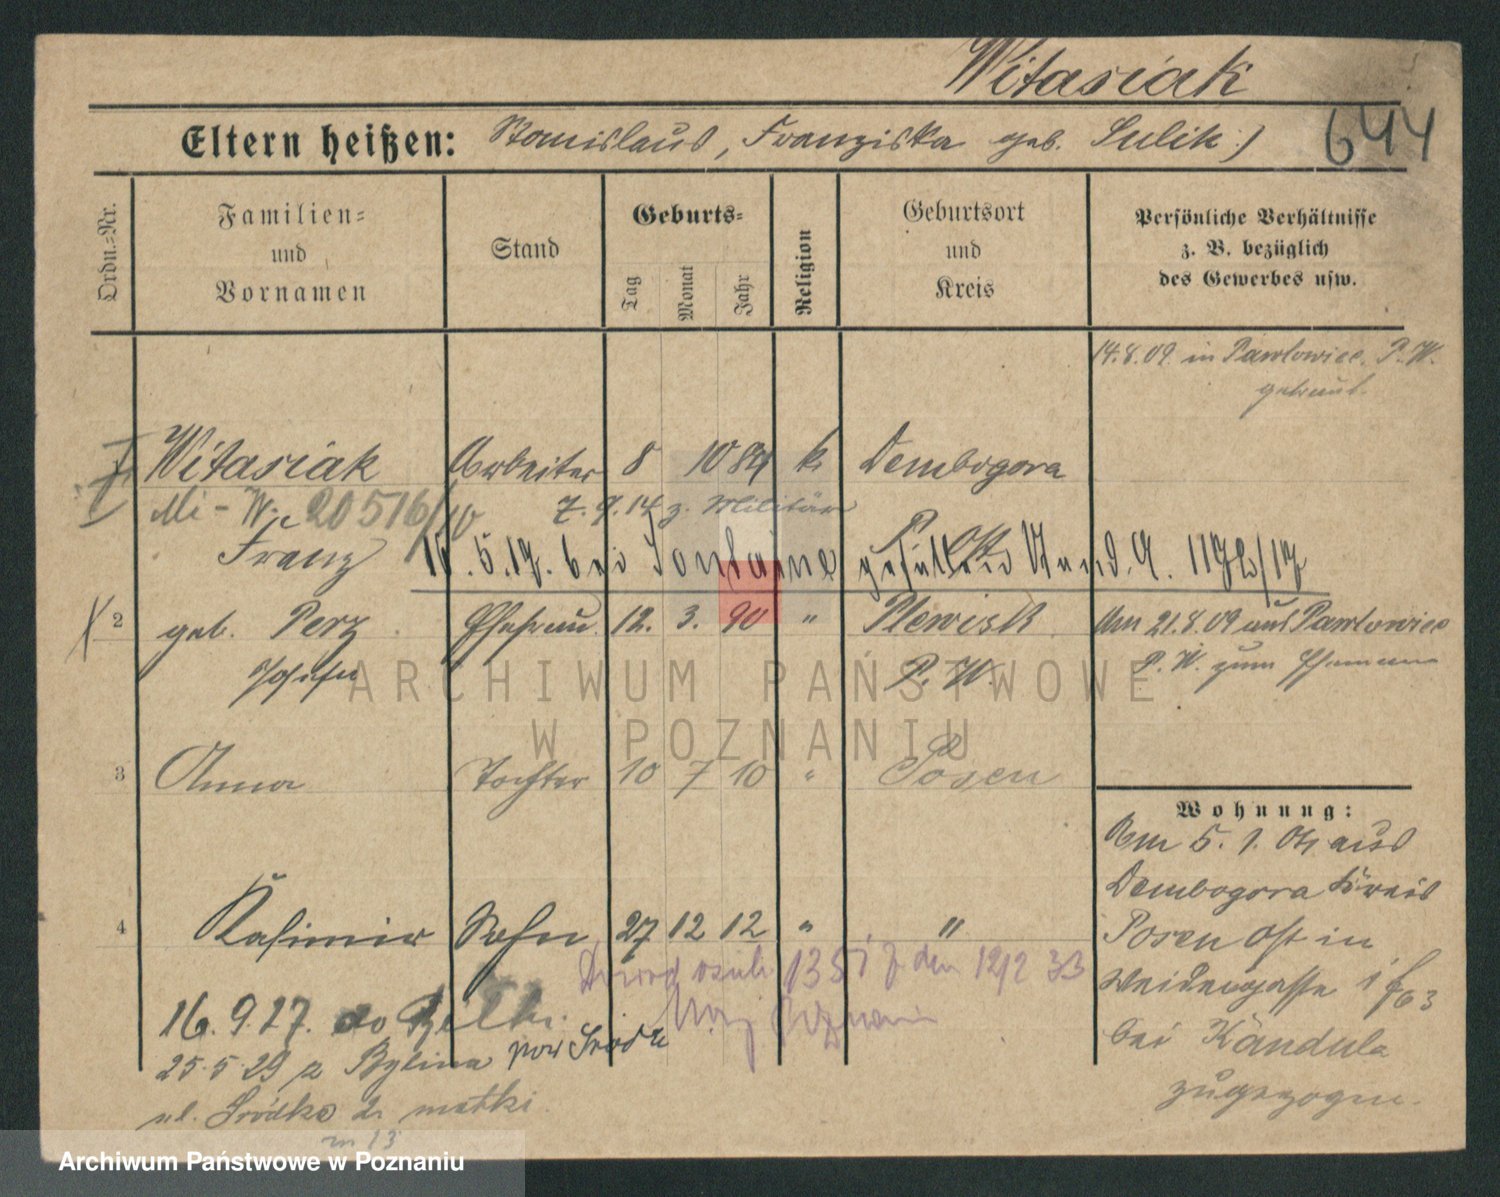 Witasiak
Eltern heißen: Stanislaus, Franziska geb. Sulik.)
644
Ordn.=Nr.
Familien=
und
Vornamen
Stand
Geburts=
Tag
Monat
Jahr
Religion
Geburtsort
und
Kreis
Persönliche Verhältnisse
z. B. bezüglich
des Gewerbes usw.
14.8.09. in Pawlowice P. W.
getraut.
Witasiak Arbeiter 8 10 84 k. Dembogora
Mi - W. 20576/10 7.9.14 z. Militär
Franz P. Ost
15.5.17. bei gefallen Stand. A. 1172/17
2 geb. Perz Ehefrau 12. 3. 90 " Plewisk Am 21.8.09 aus Pawlowice
Josefa P. W. P. W. zum Ehemann
ARCHIWUM PAŃSTWOWE
W POZNANIU
3 Anna Tochter 10 7 10 " Posen
Wohnung:
Am 5. 1. 04 aus
Dembogora Kreis
Posen Ost in
Weidengasse
bei Kandula
zugezogen.
4 Kasimir Sohn 27 12 12 " "
Dowod osob. 1351 den 12/2 33
Poznania
16.9.27. do
25.5.29 z Bylina pow Środa
ul. Śródka 2 matki
m 13
Archiwum Państwowe w Poznaniu